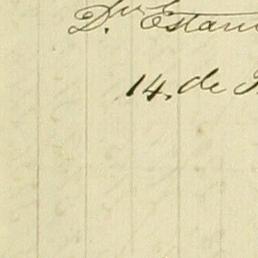 D.ⁿ Estani
14. de